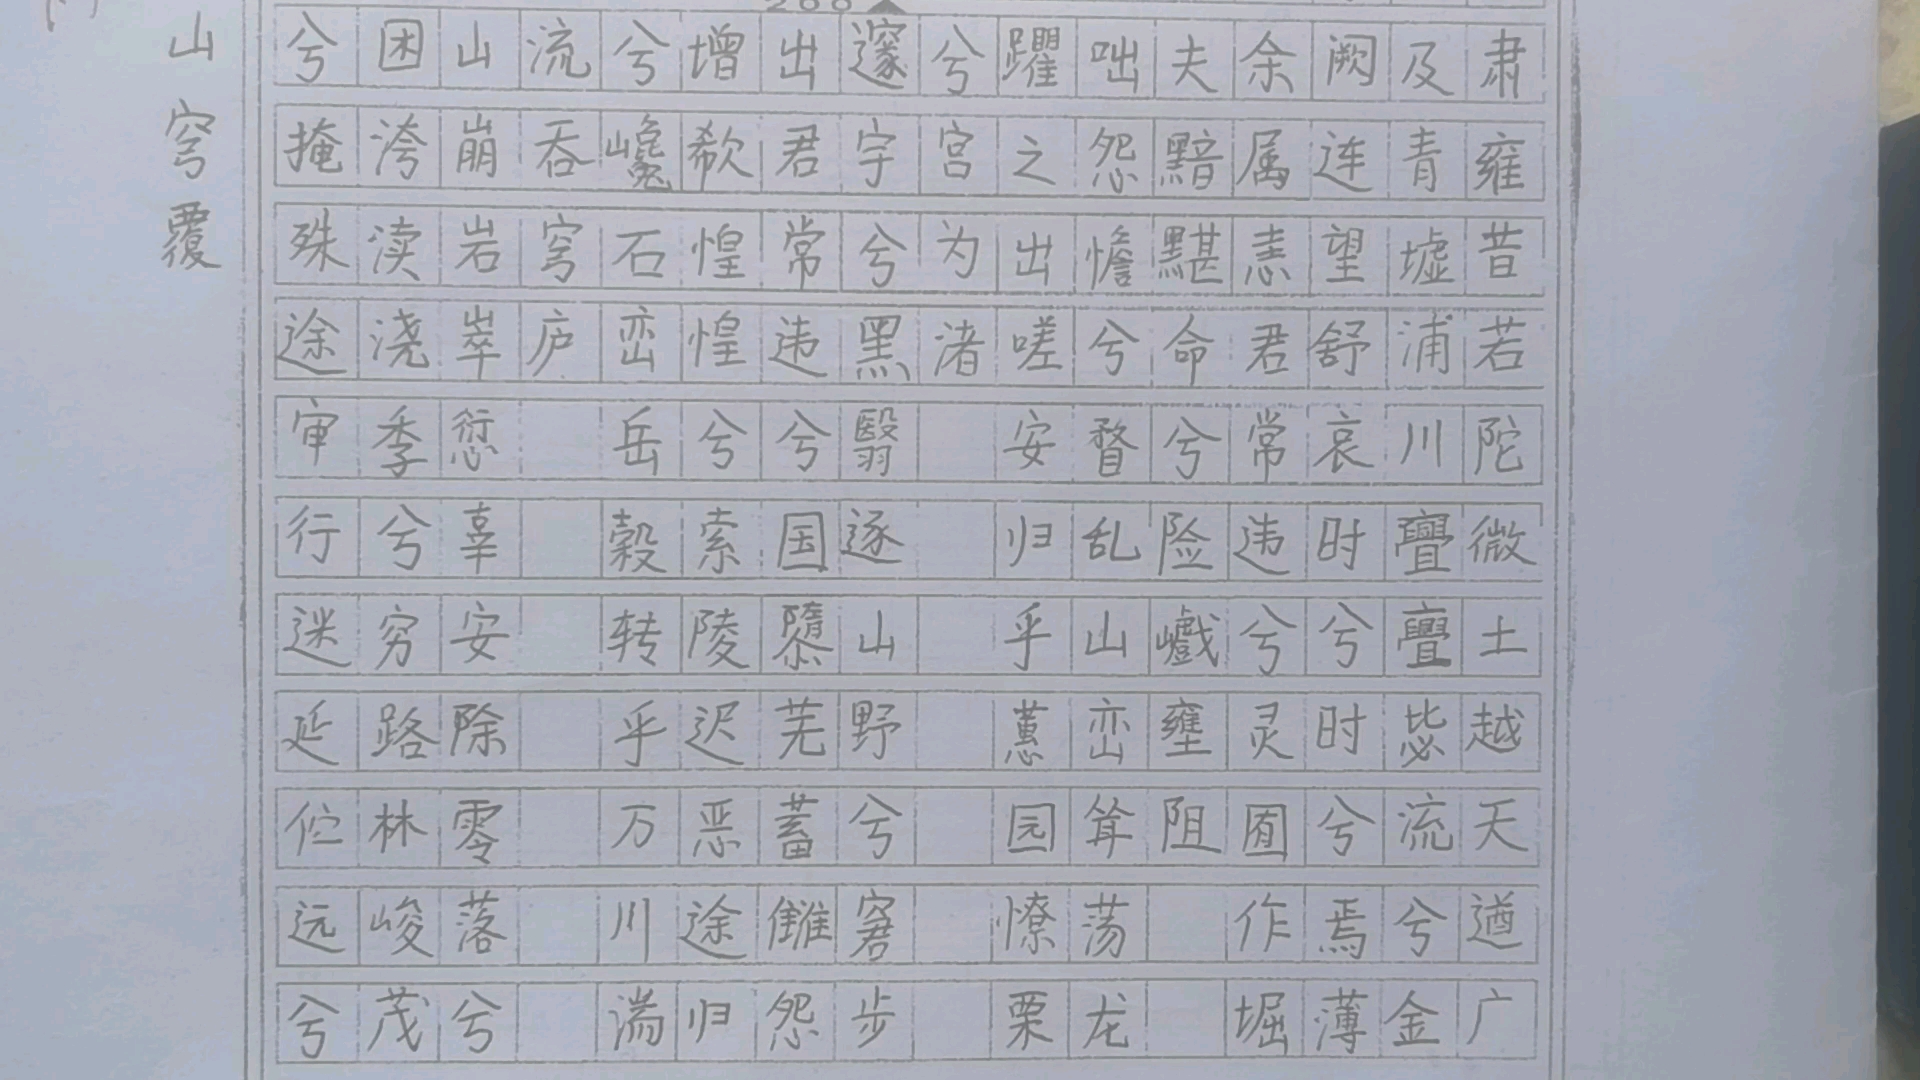 肃雍昔若陀微土越天遒广
及青墟浦川亹亹毖流兮金
阙连望舒哀时兮时兮焉薄
余属恚君常违兮灵囿作堀
夫黯黮命兮险巇壅阻
咄怨憺兮瞀乱山峦耸荡龙
躣之出嗟安归乎蕙园憭栗
兮宫为渚
邃宇兮黑翳逐山野兮窘步
出君常违兮国隳芜蓄雠怨
增欷惶惶兮索陵迟恶途归
兮巉石峦岳毂转乎万川湍
流吞穹庐
山崩岩崒愆辜安除零落兮
困洿渎浇季兮穷路林峻茂
兮掩殊途审行迷延伫远兮
山穹覆